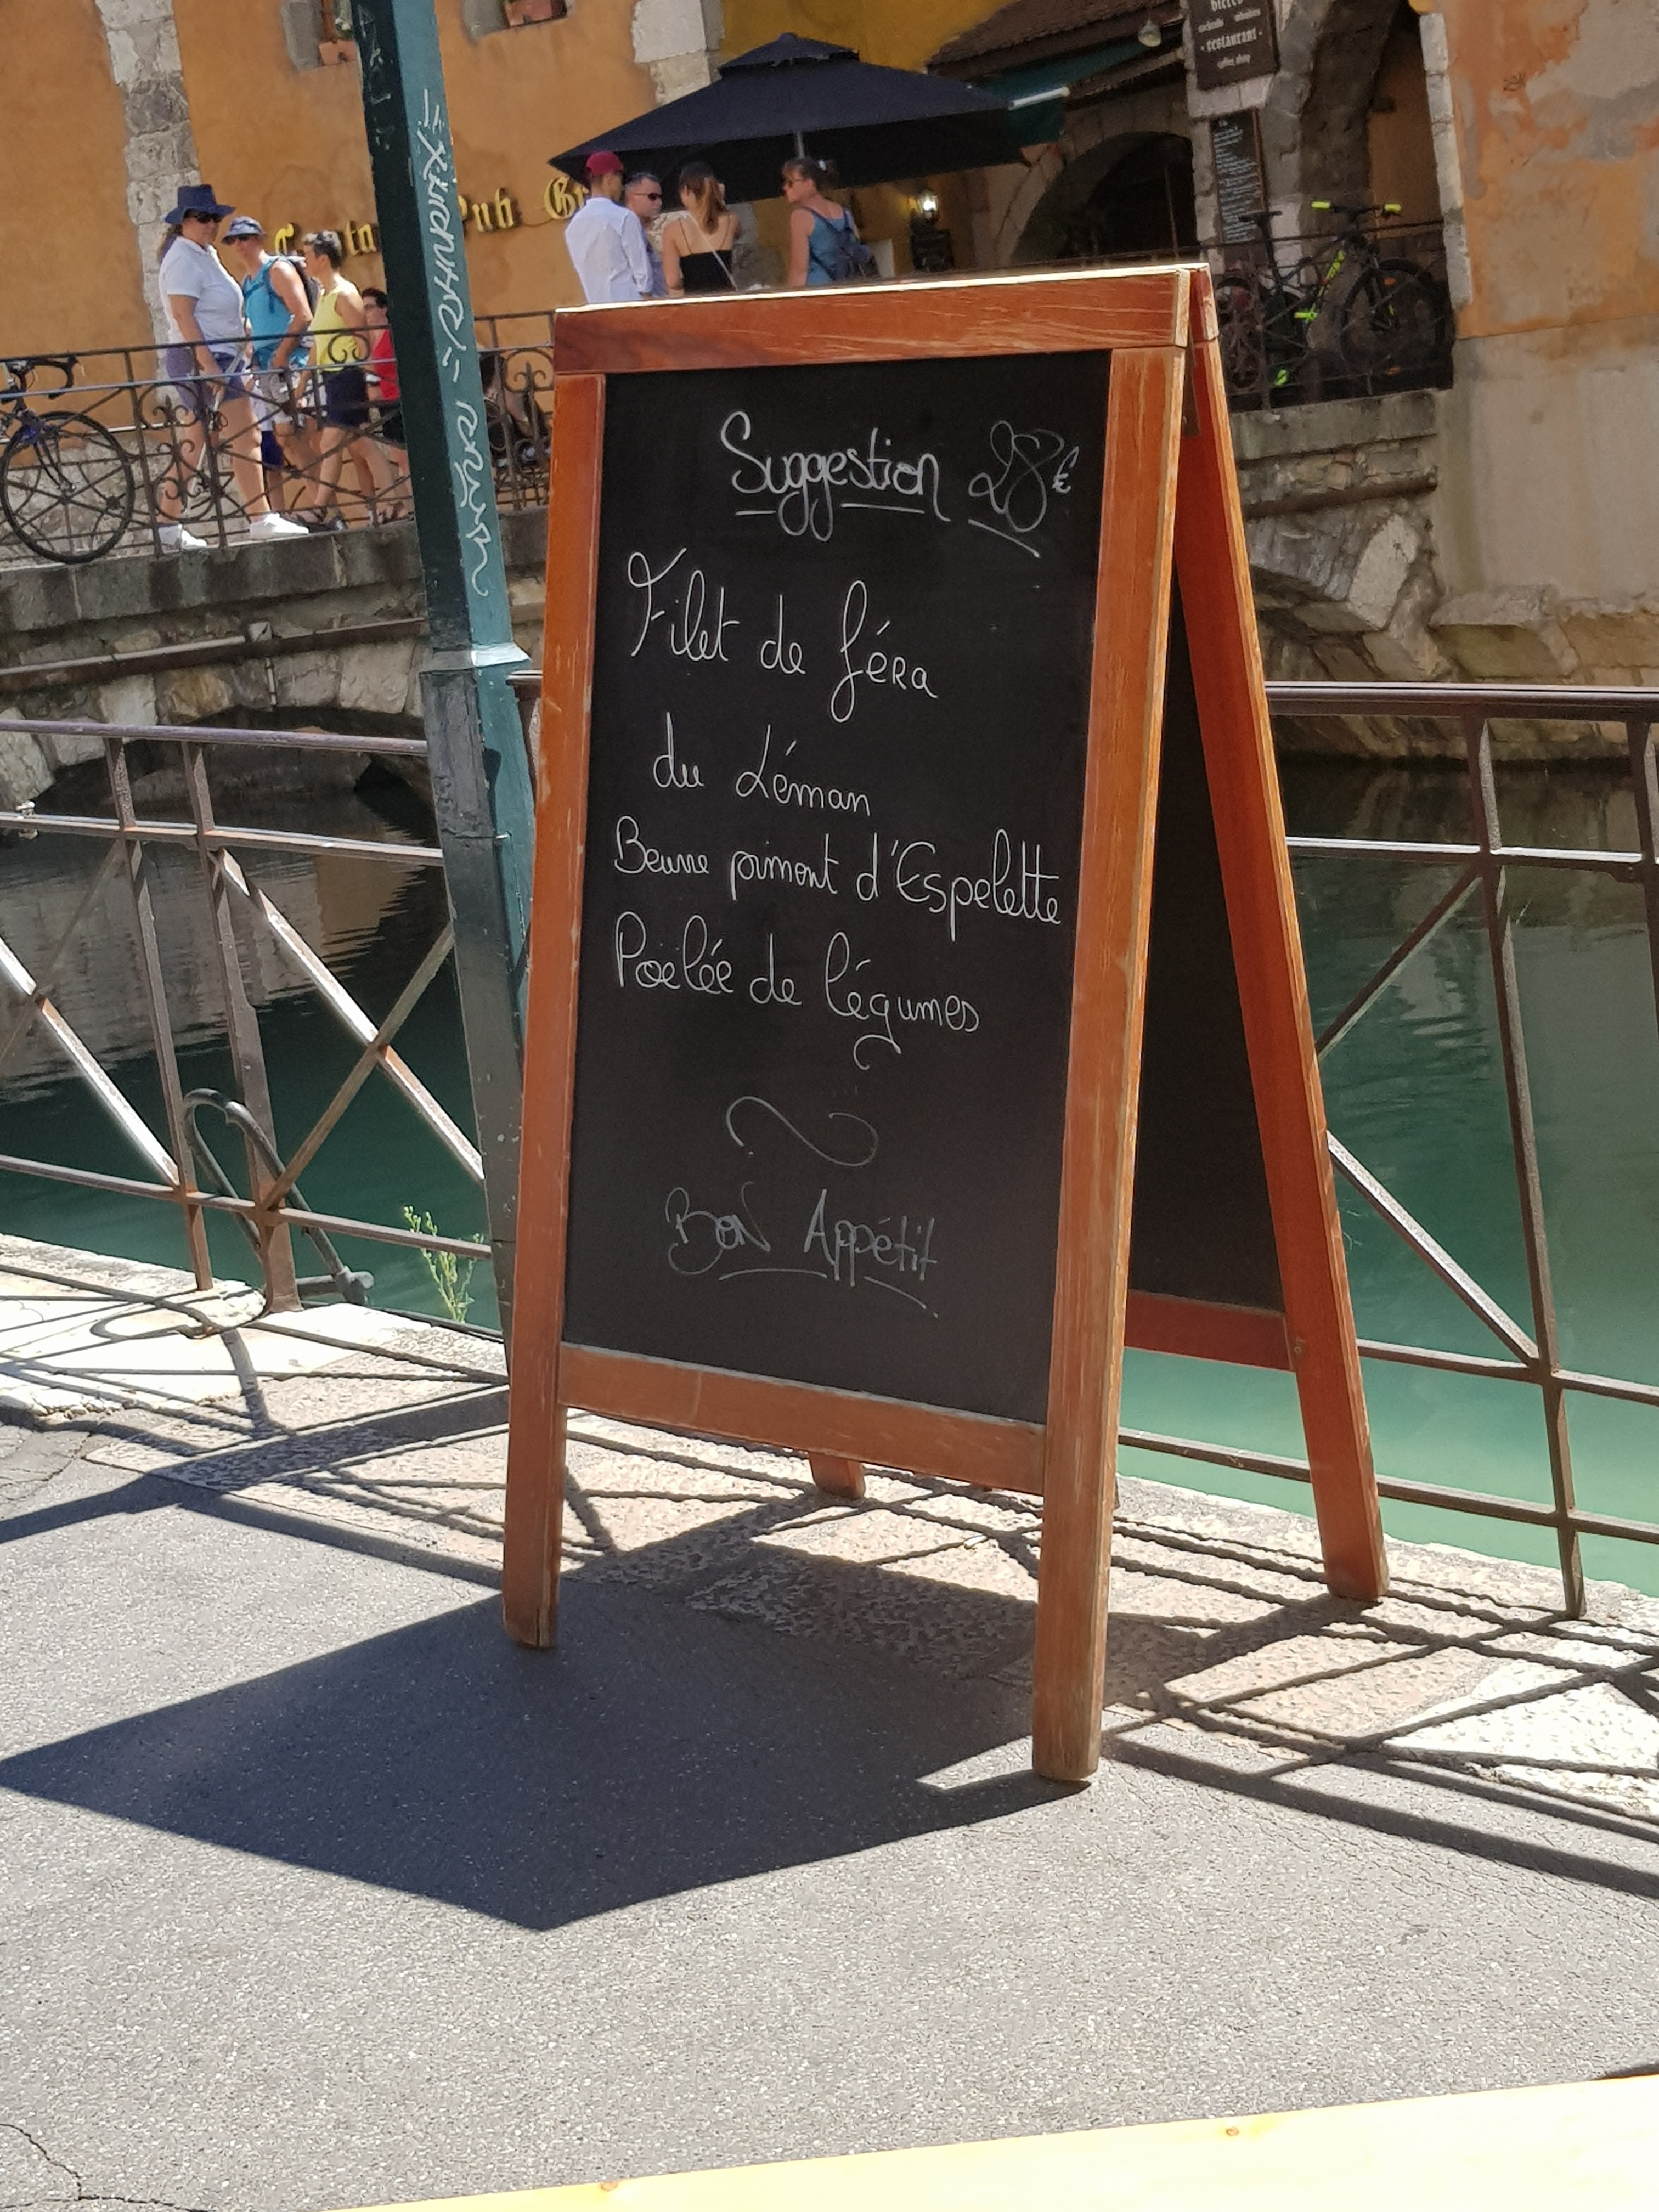 bières
cocktails
restaurant
coffee shop
Pub
Suggestion 28€
Filet de féra
du Léman
Beurre piment d'Espelette
Poëlée de légumes
BON Appétit